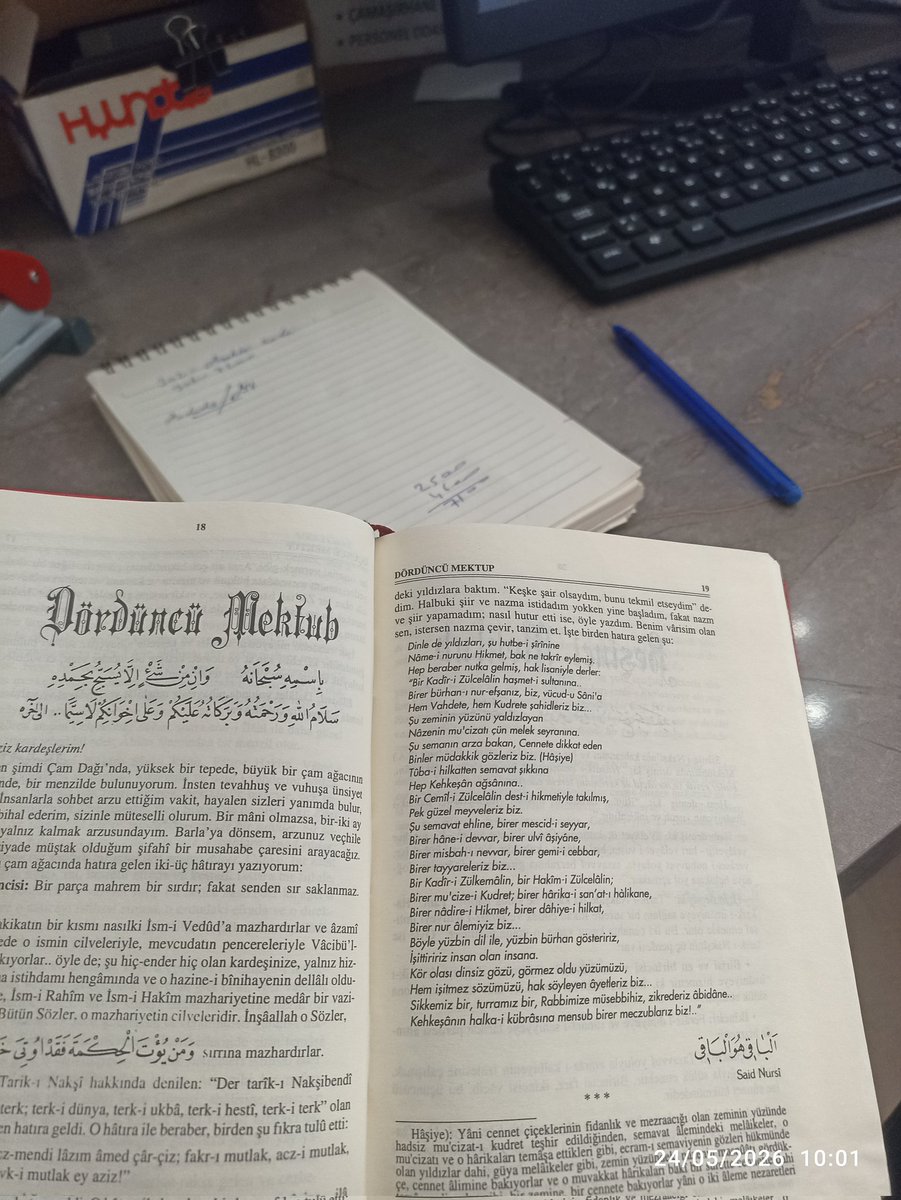 ÇAMAŞIRHANE
PERSONEL ODA
Hyundai
HL-8300
2500
7100
18
Dördüncü Mektub
بِاسْمِهِ سُبْحَانَهُ وَاِنْ مِنْ شَيْءٍ اِلَّا يُسَبِّحُ بِحَمْدِهِ
سَلَامُ اللّٰهِ وَرَحْمَتُهُ وَبَرَكَاتُهُ عَلَيْكُمْ وَعَلٰى اِخْوَانِكُمْ لَاسِيَّمَا.. الى آخره
ziz kardeşlerim!
n şimdi Çam Dağı'nda, yüksek bir tepede, büyük bir çam ağacının
nde, bir menzilde bulunuyorum. İnsten tevahhuş ve vuhuşa ünsiyet
İnsanlarla sohbet arzu ettiğim vakit, hayalen sizleri yanımda bulur,
bihal ederim, sizinle müteselli olurum. Bir mâni olmazsa, bir-iki ay
yalnız kalmak arzusundayım. Barla'ya dönsem, arzunuz veçhile
ziyade müştak olduğum şifahî bir musahabe çaresini arayacağız.
çam ağacında hatıra gelen iki-üç hâtırayı yazıyorum:
ncisi: Bir parça mahrem bir sırdır; fakat senden sır saklanmaz.
akikatın bir kısmı nasılki İsm-i Vedûd'a mazhardırlar ve âzamî
ede o ismin cilveleriyle, mevcudatın pencereleriyle Vâcibü'l-
kıyorlar.. öyle de; şu hiç-ender hiç olan kardeşinize, yalnız hiz-
na istihdamı hengâmında ve o hazine-i bînihayenin dellâlı oldu-
e, İsm-i Rahîm ve İsm-i Hakîm mazhariyetine medâr bir vazi-
Bütün Sözler, o mazhariyetin cilveleridir. İnşâallah o Sözler,
وَمَنْ يُؤْتَ الْحِكْمَةَ فَقَدْ اُوتِيَ خَ sırrına mazhardırlar.
Tarik-ı Nakşî hakkında denilen: "Der tarîk-ı Nakşibendî
terk; terk-i dünya, terk-i ukbâ, terk-i hestî, terk-i terk" olan
en hatıra geldi. O hâtıra ile beraber, birden şu fıkra tulû etti:
cz-mendi lâzım âmed çâr-çiz; fakr-ı mutlak, acz-i mutlak,
vk-i mutlak ey aziz!"
DÖRDÜNCÜ MEKTUP 19
deki yıldızlara baktım. "Keşke şair olsaydım, bunu tekmil etseydim" de-
dim. Halbuki şiir ve nazma istidadım yokken yine başladım, fakat nazm
ve şiir yapamadım; nasıl hutur etti ise, öyle yazdım. Benim vârisim olan
sen, istersen nazma çevir, tanzim et. İşte birden hatıra gelen şu:
Dinle de yıldızları, şu hutbe-i şîrînine
Nâme-i nurunu Hikmet, bak ne takrîr eylemiş.
Hep beraber nutka gelmiş, hak lisaniyle derler:
"Bir Kadîr-i Zülcelâlin haşmet-i sultanına..
Birer bürhan-ı nur-efşanız, biz, vücud-u Sâni'a
Hem Vahdete, hem Kudrete şahidleriz biz...
Şu zeminin yüzünü yaldızlayan
Nâzenin mu'cizatı çün melek seyranına.
Şu semanın arza bakan, Cennete dikkat eden
Binler müdakkik gözleriz biz. (Hâşiye)
Tûba-i hilkatten semavat şıkkına
Hep Kehkeşân ağsânına..
Bir Cemîl-i Zülcelâlin dest-i hikmetiyle takılmış,
Pek güzel meyveleriz biz.
Şu semavat ehline, birer mescid-i seyyar,
Birer hâne-i devvar, birer ulvî âşiyâne,
Birer misbah-ı nevvar, birer gemi-i cebbar,
Birer tayyareleriz biz...
Bir Kadîr-i Zülkemâlin, bir Hakîm-i Zülcelâlin;
Birer mu'cize-i Kudret; birer hârika-i san'at-ı hâlikane,
Birer nâdire-i Hikmet, birer dâhiye-i hilkat,
Birer nur âlemiyiz biz...
Böyle yüzbin dil ile, yüzbin bürhan gösteririz,
İşittiririz insan olan insana.
Kör olası dinsiz gözü, görmez oldu yüzümüzü,
Hem işitmez sözümüzü, hak söyleyen âyetleriz biz...
Sikkemiz bir, turramız bir, Rabbimize müsebbihiz, zikrederiz âbidâne..
Kehkeşânın halka-i kübrâsına mensub birer meczublarız biz!.."
اَلْبَاقِى هُوَ الْبَاقِى
Said Nursî
* * *
Hâşiye): Yâni cennet çiçeklerinin fidanlık ve mezraacığı olan zeminin yüzünde
hadsiz mu'cizat-ı kudret teşhir edildiğinden, semavat âlemindeki melâikeler, o
mu'cizatı ve o hârikaları temâşa ettikleri gibi, ecram-ı semaviyenin gözleri hükmünde
olan yıldızlar dahi, güya melâikeler gibi, zemin yüzünde
çe, cennet âlimine bakıyorlar ve o muvakkat hârikaları
bir zemine, bir cennete bakıyorlar yâni o iki âleme nezaretleri
24/05/2026 10:01